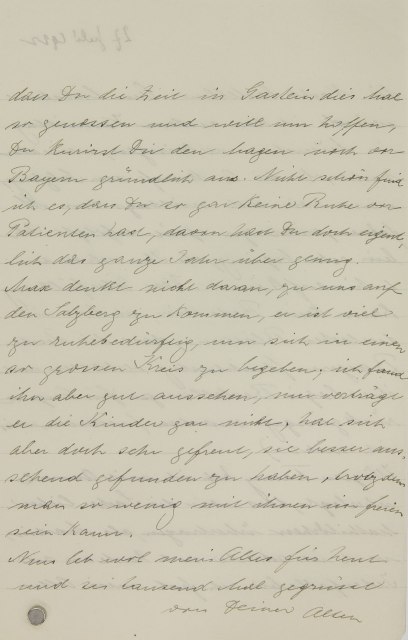 dass Du die Zeit in Gastein dies Mal
so genossen und will nun hoffen,
Du kurirst Dir den Magen noch vor
Bayern gründlich aus. Nicht schön find
ich es, dass Du so gar keine Ruhe vor
Patienten hast, davon hast Du doch eigent-
lich das ganze Jahr über genug.
Max denkt nicht daran, zu uns auf
den Salzberg zu kommen, er ist viel
zu ruhebedürftig, um sich in einen
so grossen Kreis zu begeben; ich fand
ihn aber gut aussehen, nur verträgt
er die Kinder gar nicht, hat sich
aber doch sehr gefreut, sie besser aus-
sehend gefunden zu haben, trotzdem
man so wenig mit ihnen im freien
sein kann.
Nun leb wol mein Altes für heut
und sei tausend Mal gegrüsst
von Deiner Alten